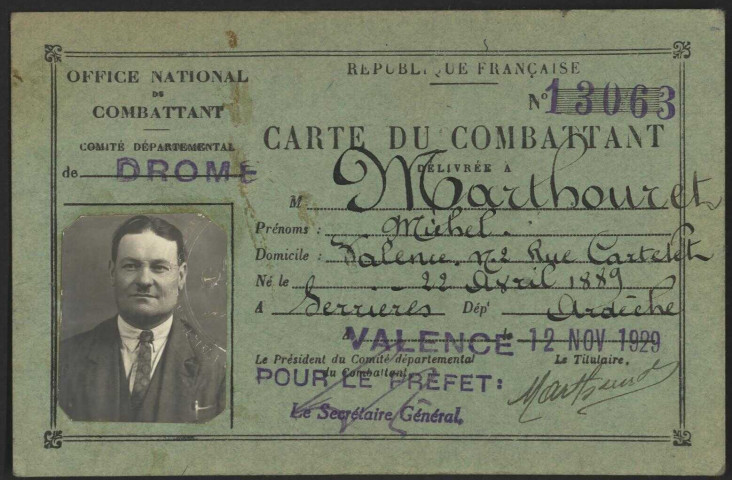 OFFICE NATIONAL
DU
COMBATTANT
COMITÉ DÉPARTEMENTAL
de DROME
RÉPUBLIQUE FRANÇAISE
N° 13063
CARTE DU COMBATTANT
DÉLIVRÉE A
M Marthouret
Prénoms : Michel.
Domicile : Valence. n°2 Rue Cartelet
Né le 22 Avril 1889
A Serrieres Dépt Ardèche
A VALENCE le 12 NOV 1929
Le Président du Comité départemental
du Combattant,
Le Titulaire,
POUR LE PREFET:
Le Secrétaire Général,
Marthouret